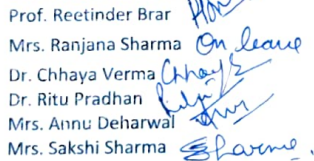 Prof. Reetinder Brar
Mrs. Ranjana Sharma On leave
Dr. Chhaya Verma Chhaya
Dr. Ritu Pradhan
Mrs. Annu Deharwal
Mrs. Sakshi Sharma Sharma